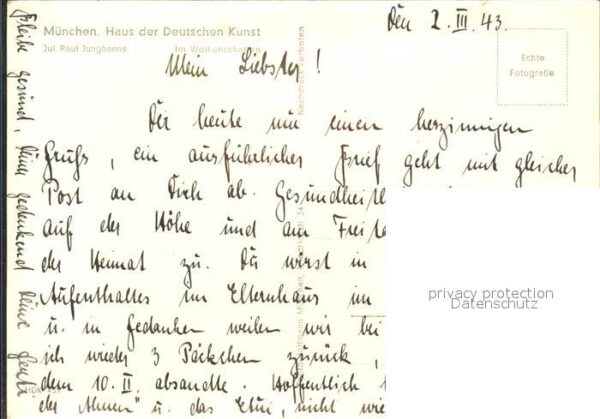 München. Haus der Deutschen Kunst
Jul. Paul Junghanns: Im Wolkenschatten
Nachdruck verboten
Echte
Fotografie
Den 2. III. 43.
Mein Liebster!
Dir heute nur einen herzinnigen
Gruß, ein ausführlicher Brief geht mit gleicher
Post an Dich ab. Gesundheitl
auf der Höhe und am Freita
der Heimat zu. Du wirst in
Aufenthaltes im Elternhaus im
u. in Gedanken weilen wir bei
ich wieder 3 Päckchen zurück,
dem 10. II. absandte. Hoffentlich
der "Ahnen" u. das Etui, nicht wie
Bleibe gesund, innig gedenkend Deine
privacy protection
Datenschutz
HDK